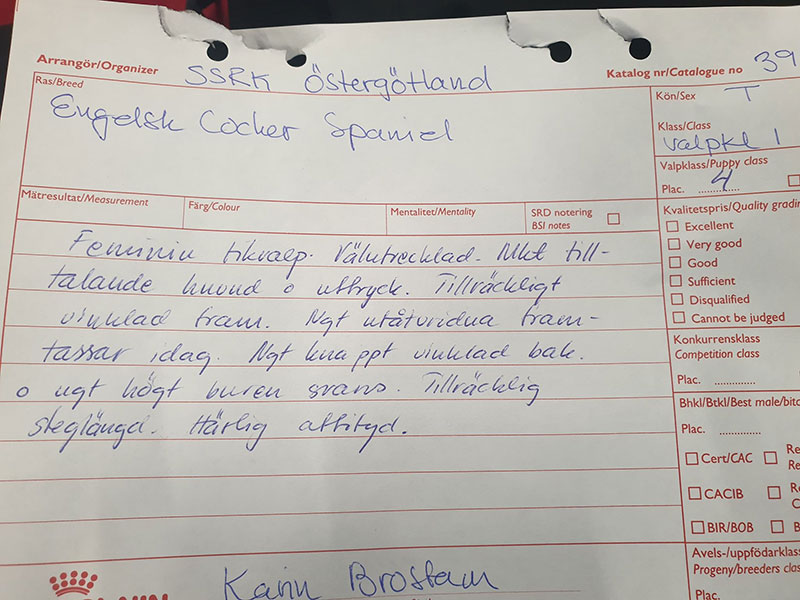 Arrangör/Organizer SSRK Östergötland Katalog nr/Catalogue no 39
Ras/Breed
Engelsk Cocker Spaniel
Kön/Sex T
Klass/Class
valpkl 1
Valpklass/Puppy class
Plac. 4
Mätresultat/Measurement
Färg/Colour
Mentalitet/Mentality
SRD notering
BSI notes
Kvalitetspris/Quality gradin
Excellent
Very good
Good
Sufficient
Disqualified
Cannot be judged
Feminin tikvalp. Välutvecklad. Mkt till-
talande huvud o uttryck. Tillräckligt
vinklad fram. Ngt utåtvridna fram-
tassar idag. Ngt knappt vinklad bak.
o ngt högt buren svans. Tillräcklig
steglängd. Härlig attityd.
Konkurrensklass
Competition class
Plac.
Bhkl/Btkl/Best male/bitc
Plac.
Cert/CAC
Re
Re
CACIB
Re
C
BIR/BOB
B
Avels-/uppfödarklass
Progeny/breeders clas
Plac.
Karin Brostam